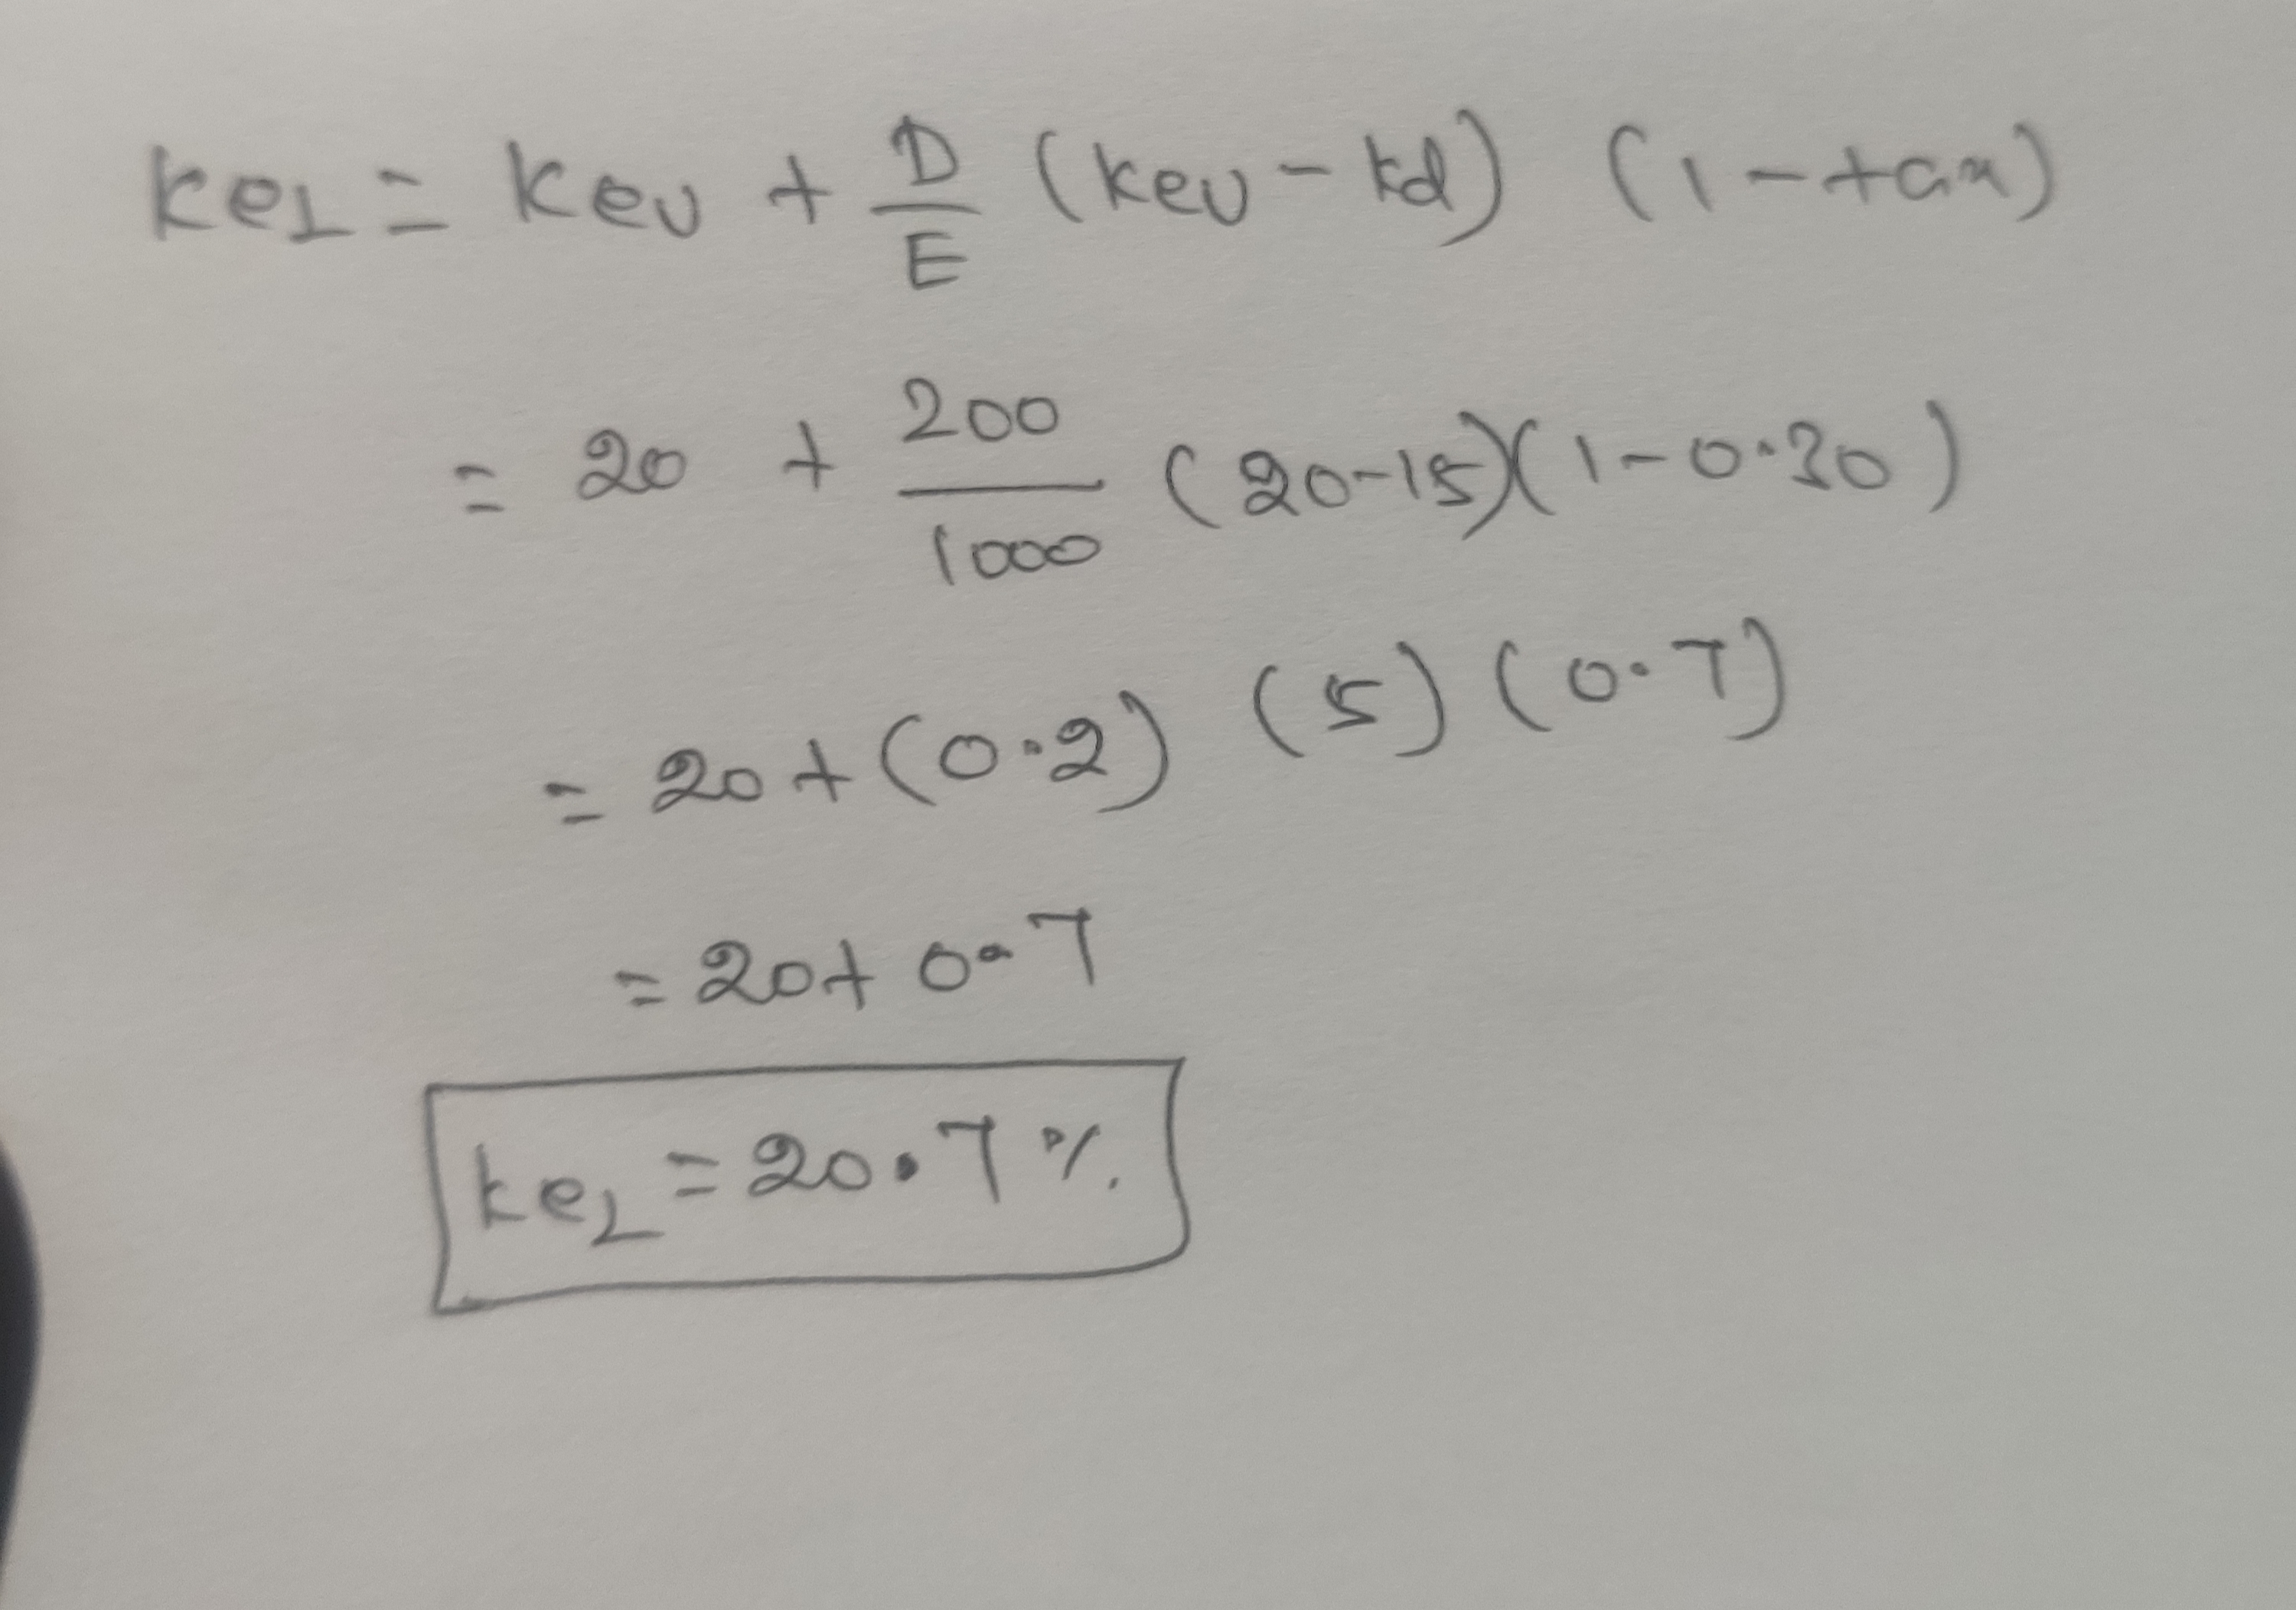 keL = keU + D/E (keU - kd) (1 - tax)
= 20 + 200/1000 (20-15)(1-0.30)
= 20+(0.2) (5) (0.7)
= 20+ 0.7
keL = 20.7 %